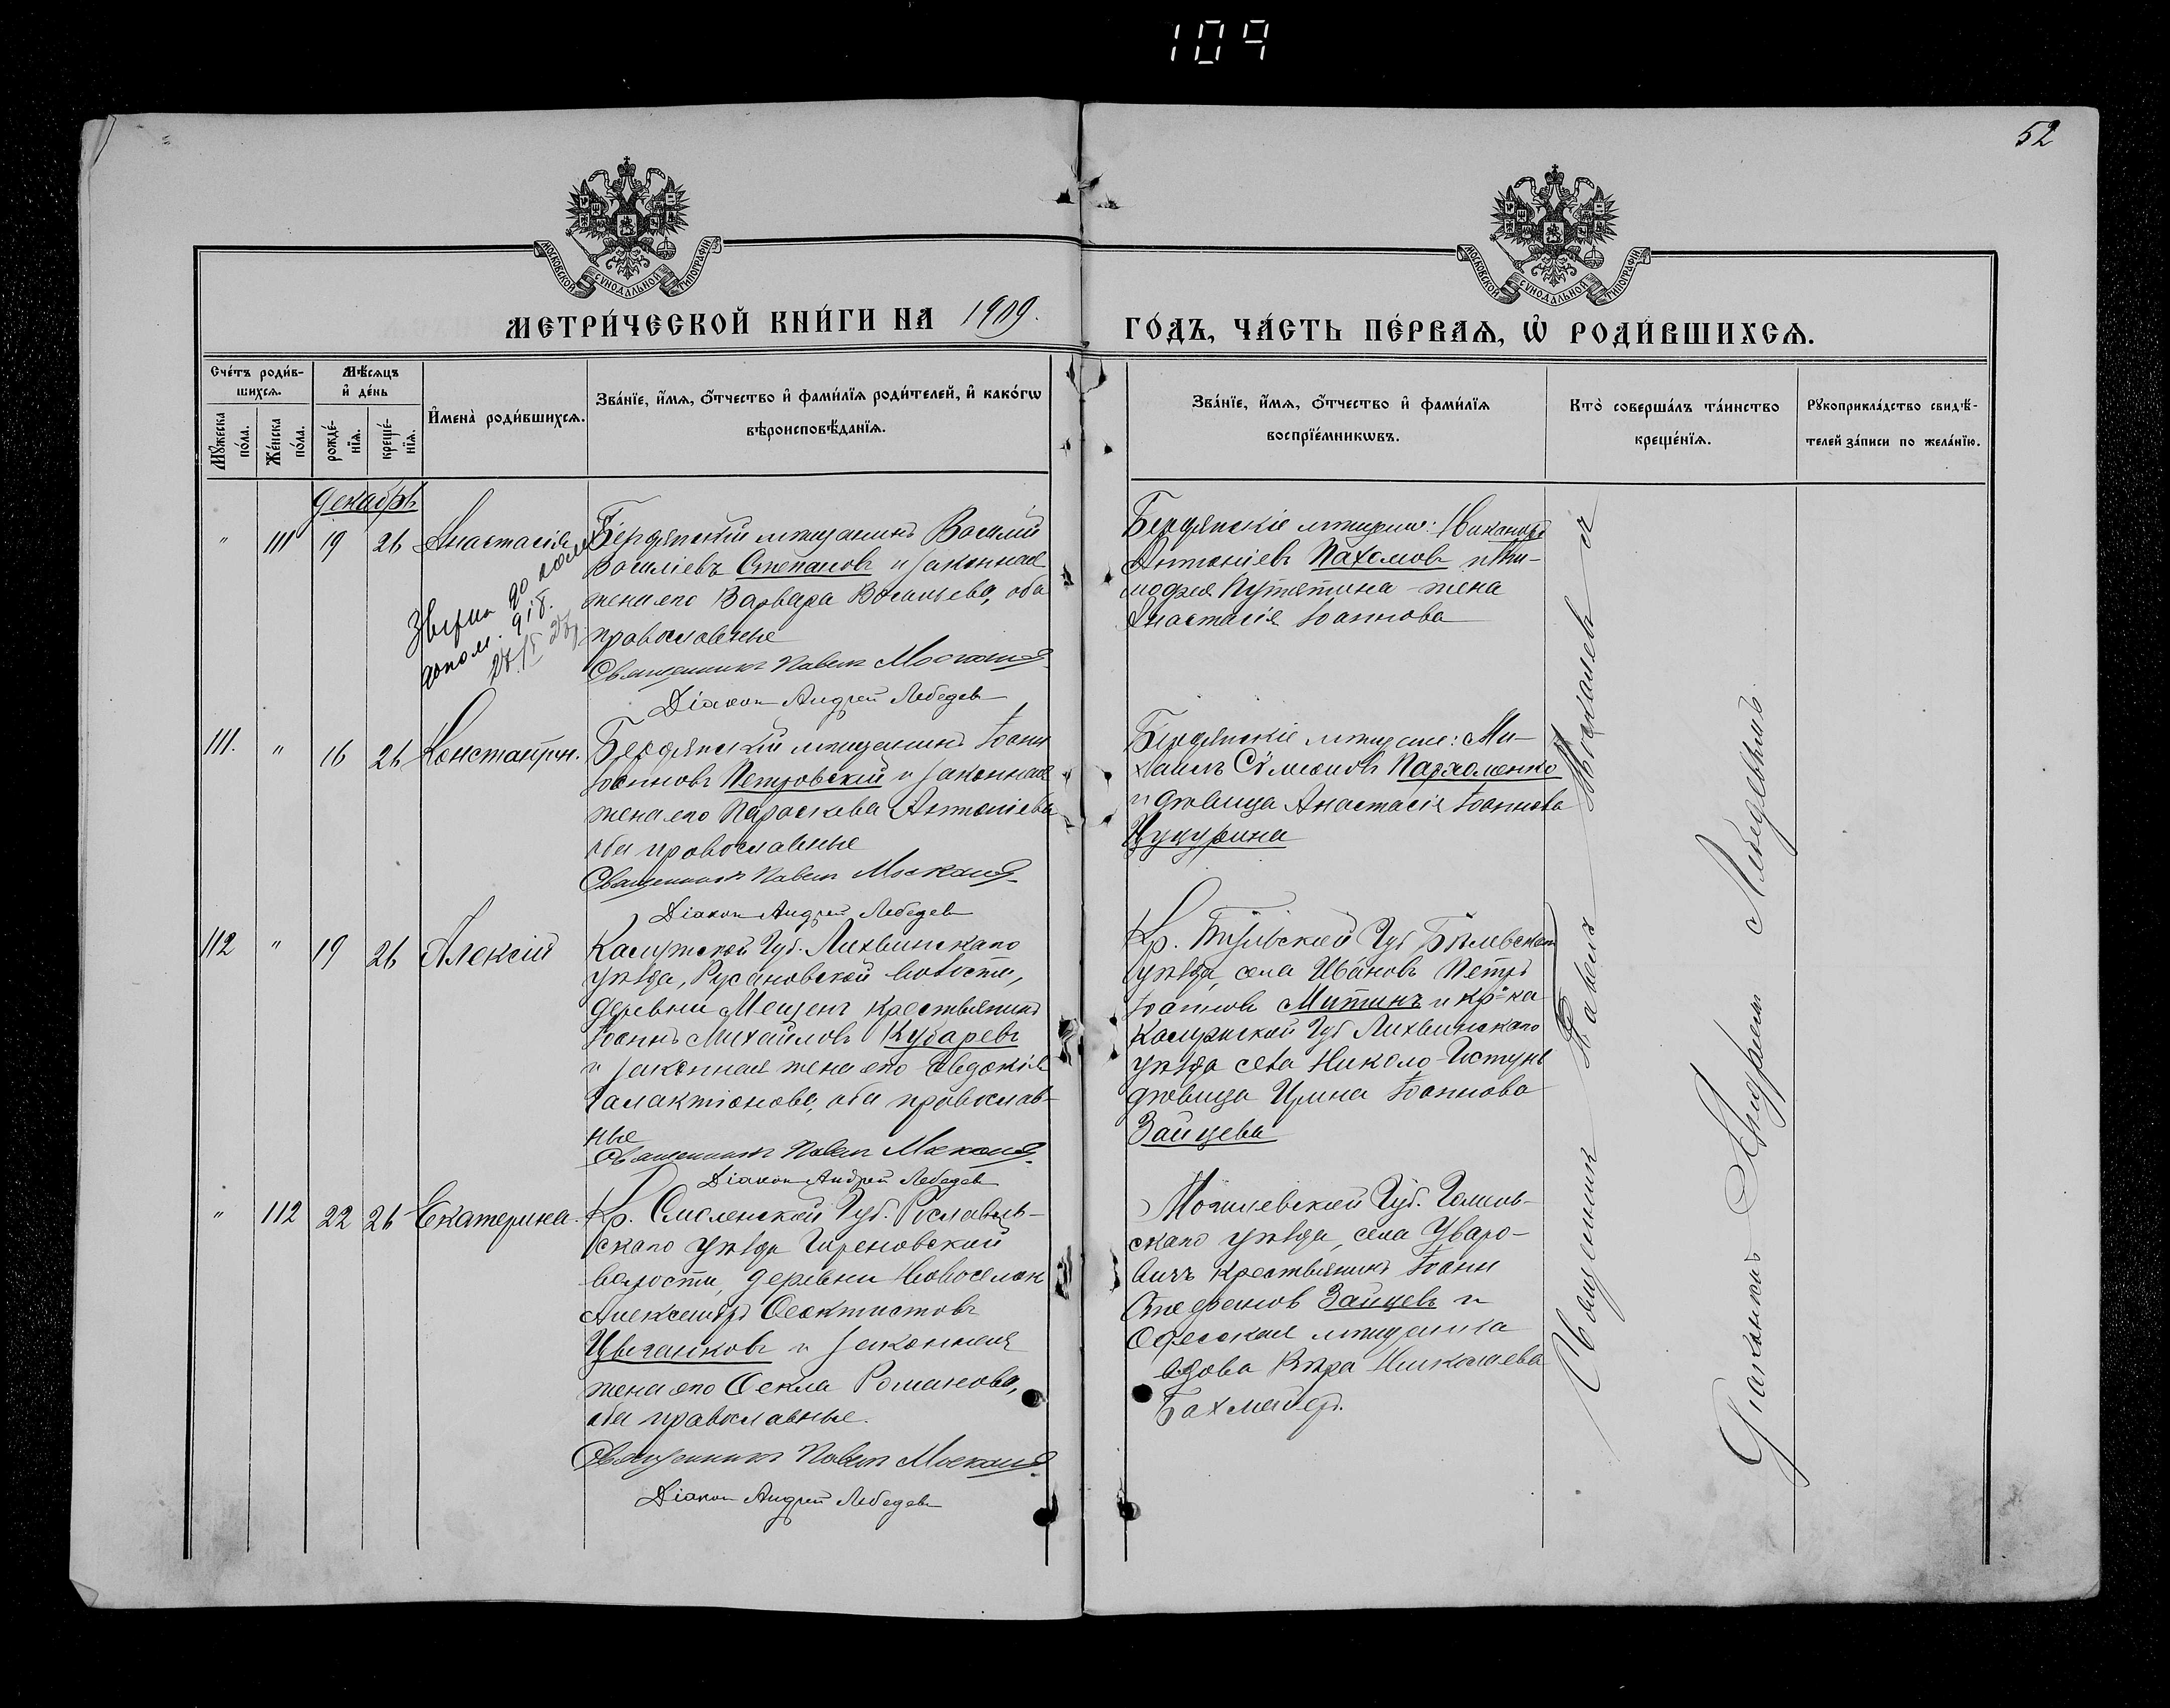 109
52
МОСКОВСКОЙ СУНОДАЛЬНОЙ ТИПОГРАФІИ
МОСКОВСКОЙ СУНОДАЛЬНОЙ ТИПОГРАФІИ
МЕТРИ́ЧЕСКОЙ КНИ́ГИ НА 1909.
ГО́ДЪ, ЧА́СТЬ ПЕ́РВАѦ, Ѽ РОДИ́ВШИХСѦ.
Сче́тъ роди́в-
шихсѧ.
Мꙋ́жеска
по́ла.
Же́нска
по́ла.
Мѣ́сѧцъ
и҆ де́нь
рожде́-
нїѧ.
креще́-
нїѧ.
И҆мена̀ роди́вшихсѧ.
Зва́нїе, и҆́мѧ, ѻ҆́тчество и҆ фами́лїѧ роди́телей, и҆ како́гѡ
вѣроисповѣ́данїѧ.
Зва́нїе, и҆́мѧ, ѻ҆́тчество и҆ фами́лїѧ
воспрїе́мникѡвъ.
Кто̀ соверша́лъ та́инство
креще́нїѧ.
Рꙋкоприкла́дство свидѣ́-
телей за́писи по жела́нїю.
Декабрь
" 111 19 26 Анастасія
Бердянскій мѣщанинъ Василій
Василіевъ Степановъ и законная
жена его Варвара Васильева, оба
православные
Священникъ Павелъ Москалев
Діаконъ Андрей Лебедевъ
Бердянскіе мѣщане: Никаноръ
Антоніевъ Пахомовъ и
Путятина жена
Анастасія Іоаннова
111. " 16 26 Константин.
Бердянскій мѣщанинъ Іоаннъ
Іоанновъ Петровскій и законная
жена его Параскева Антоніева
оба православные
Священникъ Павелъ Москалев
Діаконъ Андрей Лебедевъ
Бердянскіе мѣщане: Ми-
хаилъ Симеоновъ Пархоменко
и дѣвица Анастасія Іоаннова
Цуцурина
112 " 19 26 Алексій
Калужской Губ. Лихвинскаго
уѣзда, Русановской волости,
деревни Мещенъ крестьянинъ
Іоаннъ Михайловъ Кубаревъ
и законная жена его Евдокія
Галактіонова, оба православ-
ные
Священникъ Павелъ Москалев
Діаконъ Андрей Лебедевъ
Кр. Тульской Губ Бѣлевскаго
уѣзда, села Ивановъ Петръ
Іоанновъ Митинъ и кр-ка
Калужской Губ Лихвинскаго
уѣзда села Николо-Гастунь
дѣвица Ирина Іоаннова
Зайцева
" 112 22 26 Екатерина.
Кр. Смоленской Губ. Рославль-
скаго уѣзда
волости, деревни Новоселокъ
Александръ Ѳеоктистовъ
Цыганковъ и законная
жена его Ѳекла Романова,
оба православные.
Священникъ Павелъ Москалев
Діаконъ Андрей Лебедевъ
Могилевской Губ. Гомель-
скаго уѣзда, села Уваро-
вичъ крестьянинъ Іоаннъ
Стефановъ Зайцевъ и
Одесская мѣщанка
вдова Вѣра Николаева
Бахмейеръ.
Священникъ Павелъ Москалевъ съ
Діакономъ Андреемъ Лебедевымъ